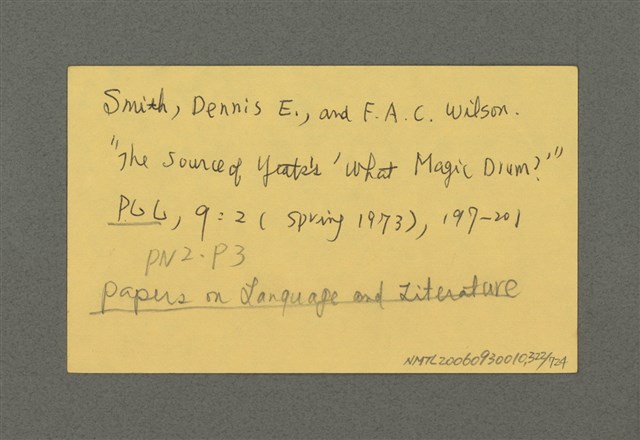 Smith, Dennis E., and F.A.C. Wilson.
"The Source of Yeats's 'What Magic Drum?'"
PLL, 9:2 (Spring 1973), 197-201
PN2.P3
Papers on Language and Literature
NMTL20060930010,322/724